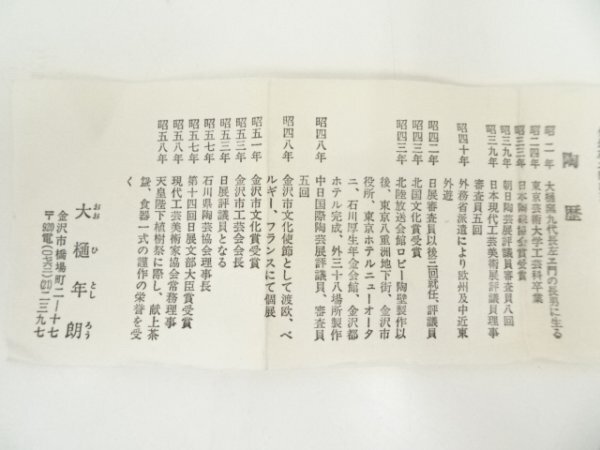 陶歴
昭二一年 大樋窯九代長左ヱ門の長男に生る
昭二四年 東京芸術大学工芸科卒業
昭三三年 日本陶磁協会賞受賞
昭三九年 朝日陶芸展評議員審査員八回
昭三九年 日本現代工芸美術展評議員理事
審査員五回
昭四十年 外務省派遣により欧州及中近東
外遊
昭四二年 日展審査員以後二回就任、評議員
昭四三年 北国文化賞受賞
昭四三年 北陸放送会館ロビー陶壁製作以
後、東京八重洲地下街、金沢市
役所、東京ホテルニューオータ
ニ、石川厚生年金会館、金沢都
ホテル完成、外三十八場所製作
昭四八年 中日国際陶芸展評議員、審査員
五回
昭四八年 金沢市文化使節として渡欧、ベ
ルギー、フランスにて個展
昭五一年 金沢市文化賞受賞
昭五三年 金沢市工芸会会長
昭五三年 日展評議員となる
昭五七年 石川県陶芸協会理事長
昭五七年 第十四回日展文部大臣賞受賞
昭五八年 現代工芸美術家協会常務理事
昭五八年 天皇陛下植樹祭に際し、献上茶
盌、食器一式の謹作の栄誉を受
く
大樋年朗
おおひとしろう
金沢市橋場町二―十七
〒920電(〇七六二)(21)二三九七